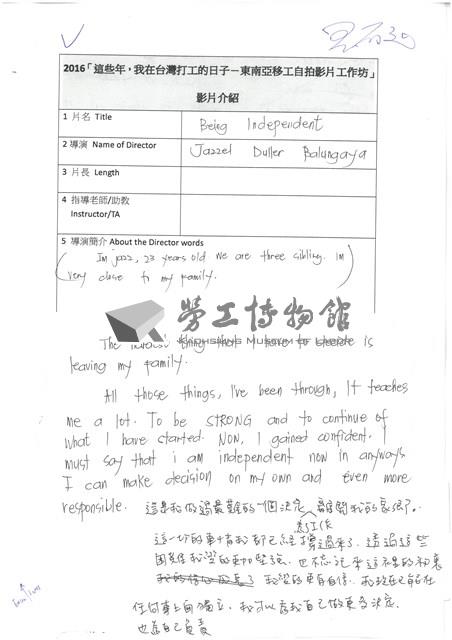 2016「這些年，我在台灣打工的日子－東南亞移工自拍影片工作坊」
影片介紹
1 片名 Title
Being Independent
2 導演 Name of Director
Jazzel Duller Balungaya
3 片長 Length
4 指導老師/助教
Instructor/TA
5 導演簡介 About the Director words
Im jazz, 23 years old we are three sibling. Im
very close to my family.
勞工博物館
KAOHSIUNG MUSEUM OF LABOR
The hardest thing that I have to decide is
leaving my family.
All those things, I've been through, It teaches
me a lot. To be STRONG and to continue of
what I have started. NOW, I gained confident. I
must say that i am independent now in anyways
I can make decision on my own and even more
responsible. 這是我做過最難的一個決定 離開我的家很
這一切的事情我都已經 過來了. 透過這些
我變的更加堅強. 也不忘記來這裡的初衷
我變的更有自信. 我現在已經在
任何事上面獨立. 我可以為我自己做更多決定.
也為自己負責